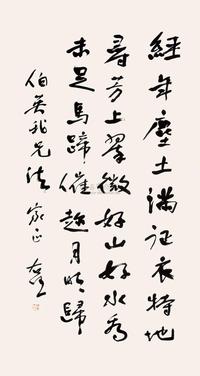 經年塵土滿征衣特地
尋芳上翠微好山好水看
未足馬蹄催趁月明歸
伯英我兄法家正 右任